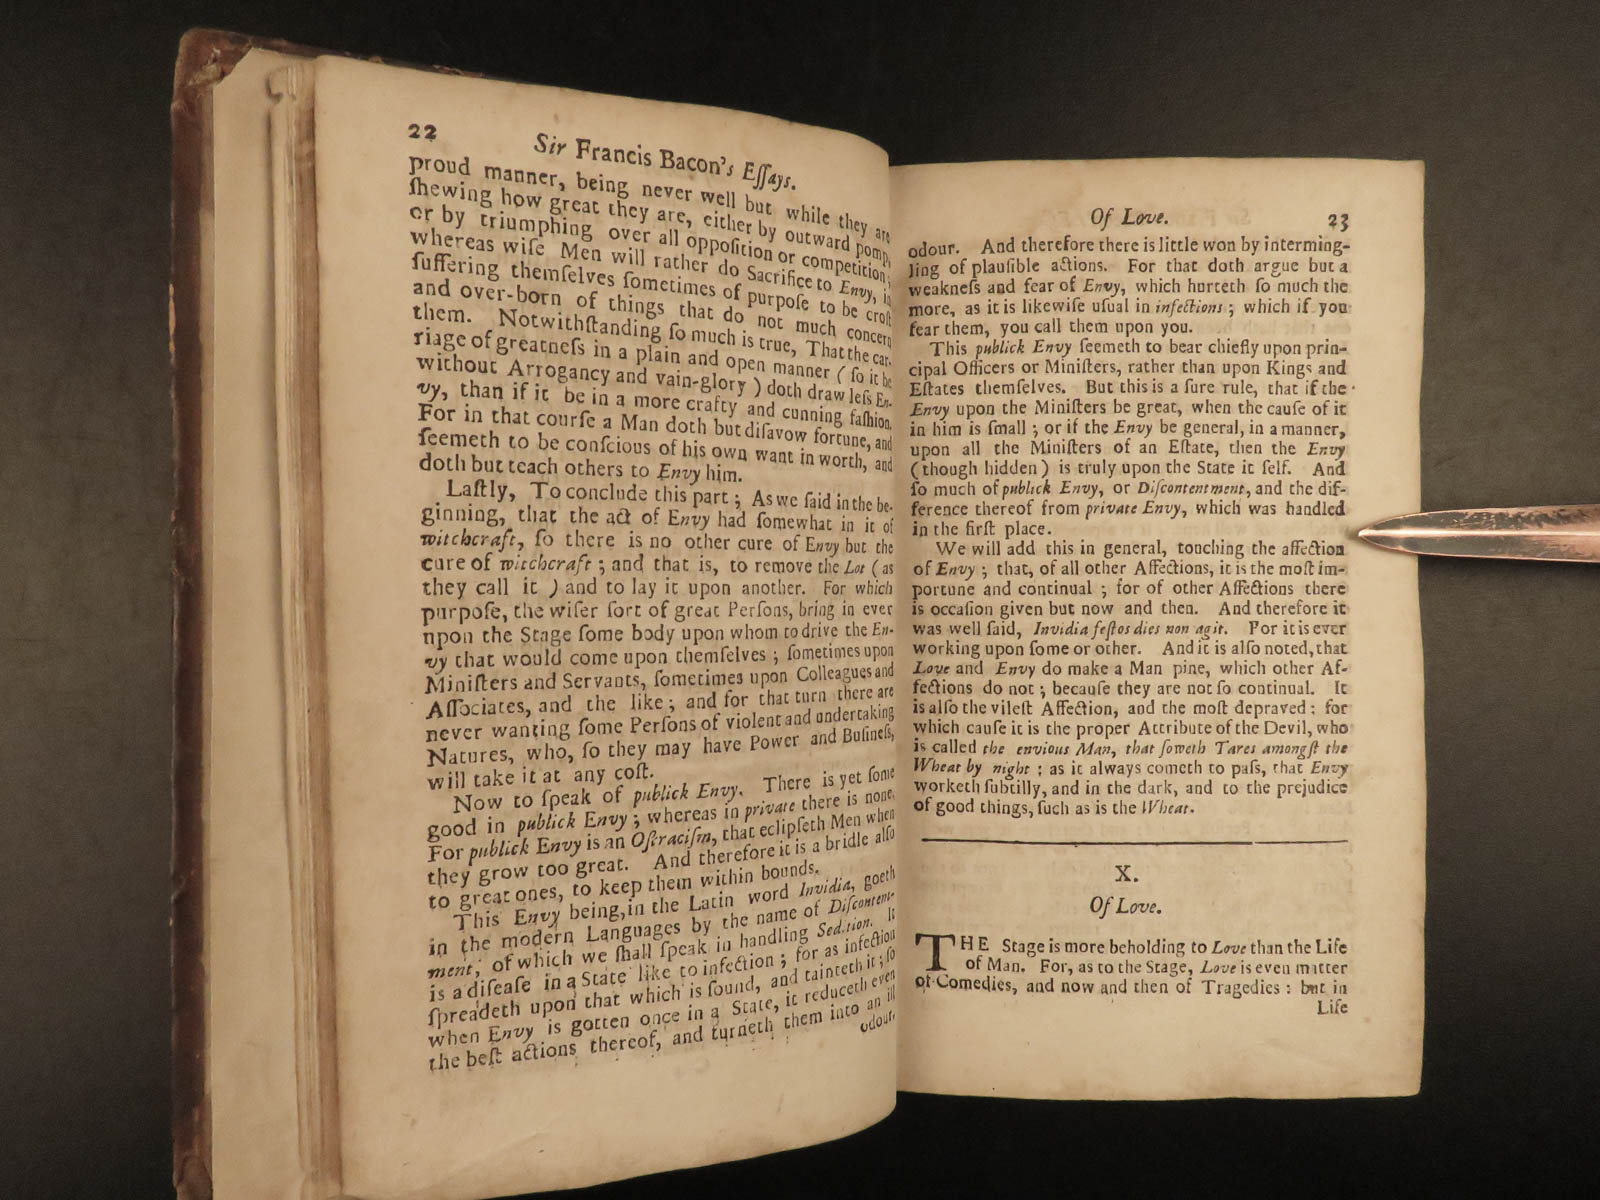 22
Sir Francis Bacon's Eſſays.
proud manner, being never well but while they are
ſhewing how great they are, either by outward pomp,
or by triumphing over all oppoſition or competition;
whereas wiſe Men will rather do Sacrifice to Envy, in
ſuffering themſelves ſometimes of purpoſe to be croſt
and over-born of things that do not much concern
them. Notwithſtanding ſo much is true, That the car-
riage of greatneſs in a plain and open manner (ſo it be
without Arrogancy and vain-glory) doth draw leſs En-
vy, than if it be in a more crafty and cunning faſhion.
For in that courſe a Man doth but diſavow fortune, and
ſeemeth to be conſcious of his own want in worth, and
doth but teach others to Envy him.
Laſtly, To conclude this part; As we ſaid in the be-
ginning, that the act of Envy had ſomewhat in it of
witchcraft, ſo there is no other cure of Envy but the
cure of witchcraft; and that is, to remove the Lot (as
they call it) and to lay it upon another. For which
purpoſe, the wiſer ſort of great Perſons, bring in ever
upon the Stage ſome body upon whom to drive the En-
vy that would come upon themſelves; ſometimes upon
Miniſters and Servants, ſometimes upon Colleagues and
Aſſociates, and the like; and for that turn there are
never wanting ſome Perſons of violent and undertaking
Natures, who, ſo they may have Power and Buſineſs,
will take it at any coſt.
Now to ſpeak of publick Envy. There is yet ſome
good in publick Envy; whereas in private there is none.
For publick Envy is an Oſtraciſm, that eclipſeth Men when
they grow too great. And therefore it is a bridle alſo
to great ones, to keep them within bounds.
This Envy being, in the Latin word Invidia, goeth
in the modern Languages by the name of Diſcontent-
ment, of which we ſhall ſpeak in handling Sedition. It
is a diſeaſe in a State like to infection; for as infection
ſpreadeth upon that which is ſound, and tainteth it; ſo
when Envy is gotten once in a State, it reduceth even
the beſt actions thereof, and turneth them into an ill
odour.
Of Love.
23
odour. And therefore there is little won by interming-
ling of plauſible actions. For that doth argue but a
weakneſs and fear of Envy, which hurteth ſo much the
more, as it is likewiſe uſual in infections; which if you
fear them, you call them upon you.
This publick Envy ſeemeth to bear chiefly upon prin-
cipal Officers or Miniſters, rather than upon Kings and
Eſtates themſelves. But this is a ſure rule, that if the
Envy upon the Miniſters be great, when the cauſe of it
in him is ſmall; or if the Envy be general, in a manner,
upon all the Miniſters of an Eſtate, then the Envy
(though hidden) is truly upon the State it ſelf. And
ſo much of publick Envy, or Diſcontentment, and the dif-
ference thereof from private Envy, which was handled
in the firſt place.
We will add this in general, touching the affection
of Envy; that, of all other Affections, it is the moſt im-
portune and continual; for of other Affections there
is occaſion given but now and then. And therefore it
was well ſaid, Invidia feſtos dies non agit. For it is ever
working upon ſome or other. And it is alſo noted, that
Love and Envy do make a Man pine, which other Af-
fections do not; becauſe they are not ſo continual. It
is alſo the vileſt Affection, and the moſt depraved: for
which cauſe it is the proper Attribute of the Devil, who
is called the envious Man, that ſoweth Tares amongſt the
Wheat by night; as it always cometh to paſs, that Envy
worketh ſubtilly, and in the dark, and to the prejudice
of good things, ſuch as is the Wheat.
X.
Of Love.
THE Stage is more beholding to Love than the Life
of Man. For, as to the Stage, Love is even matter
of Comedies, and now and then of Tragedies: but in
Life